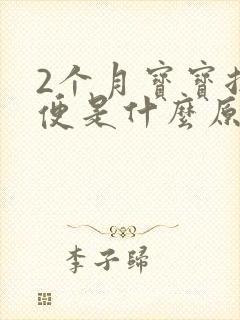 2个月寶寶
便是什麼原
李子歸